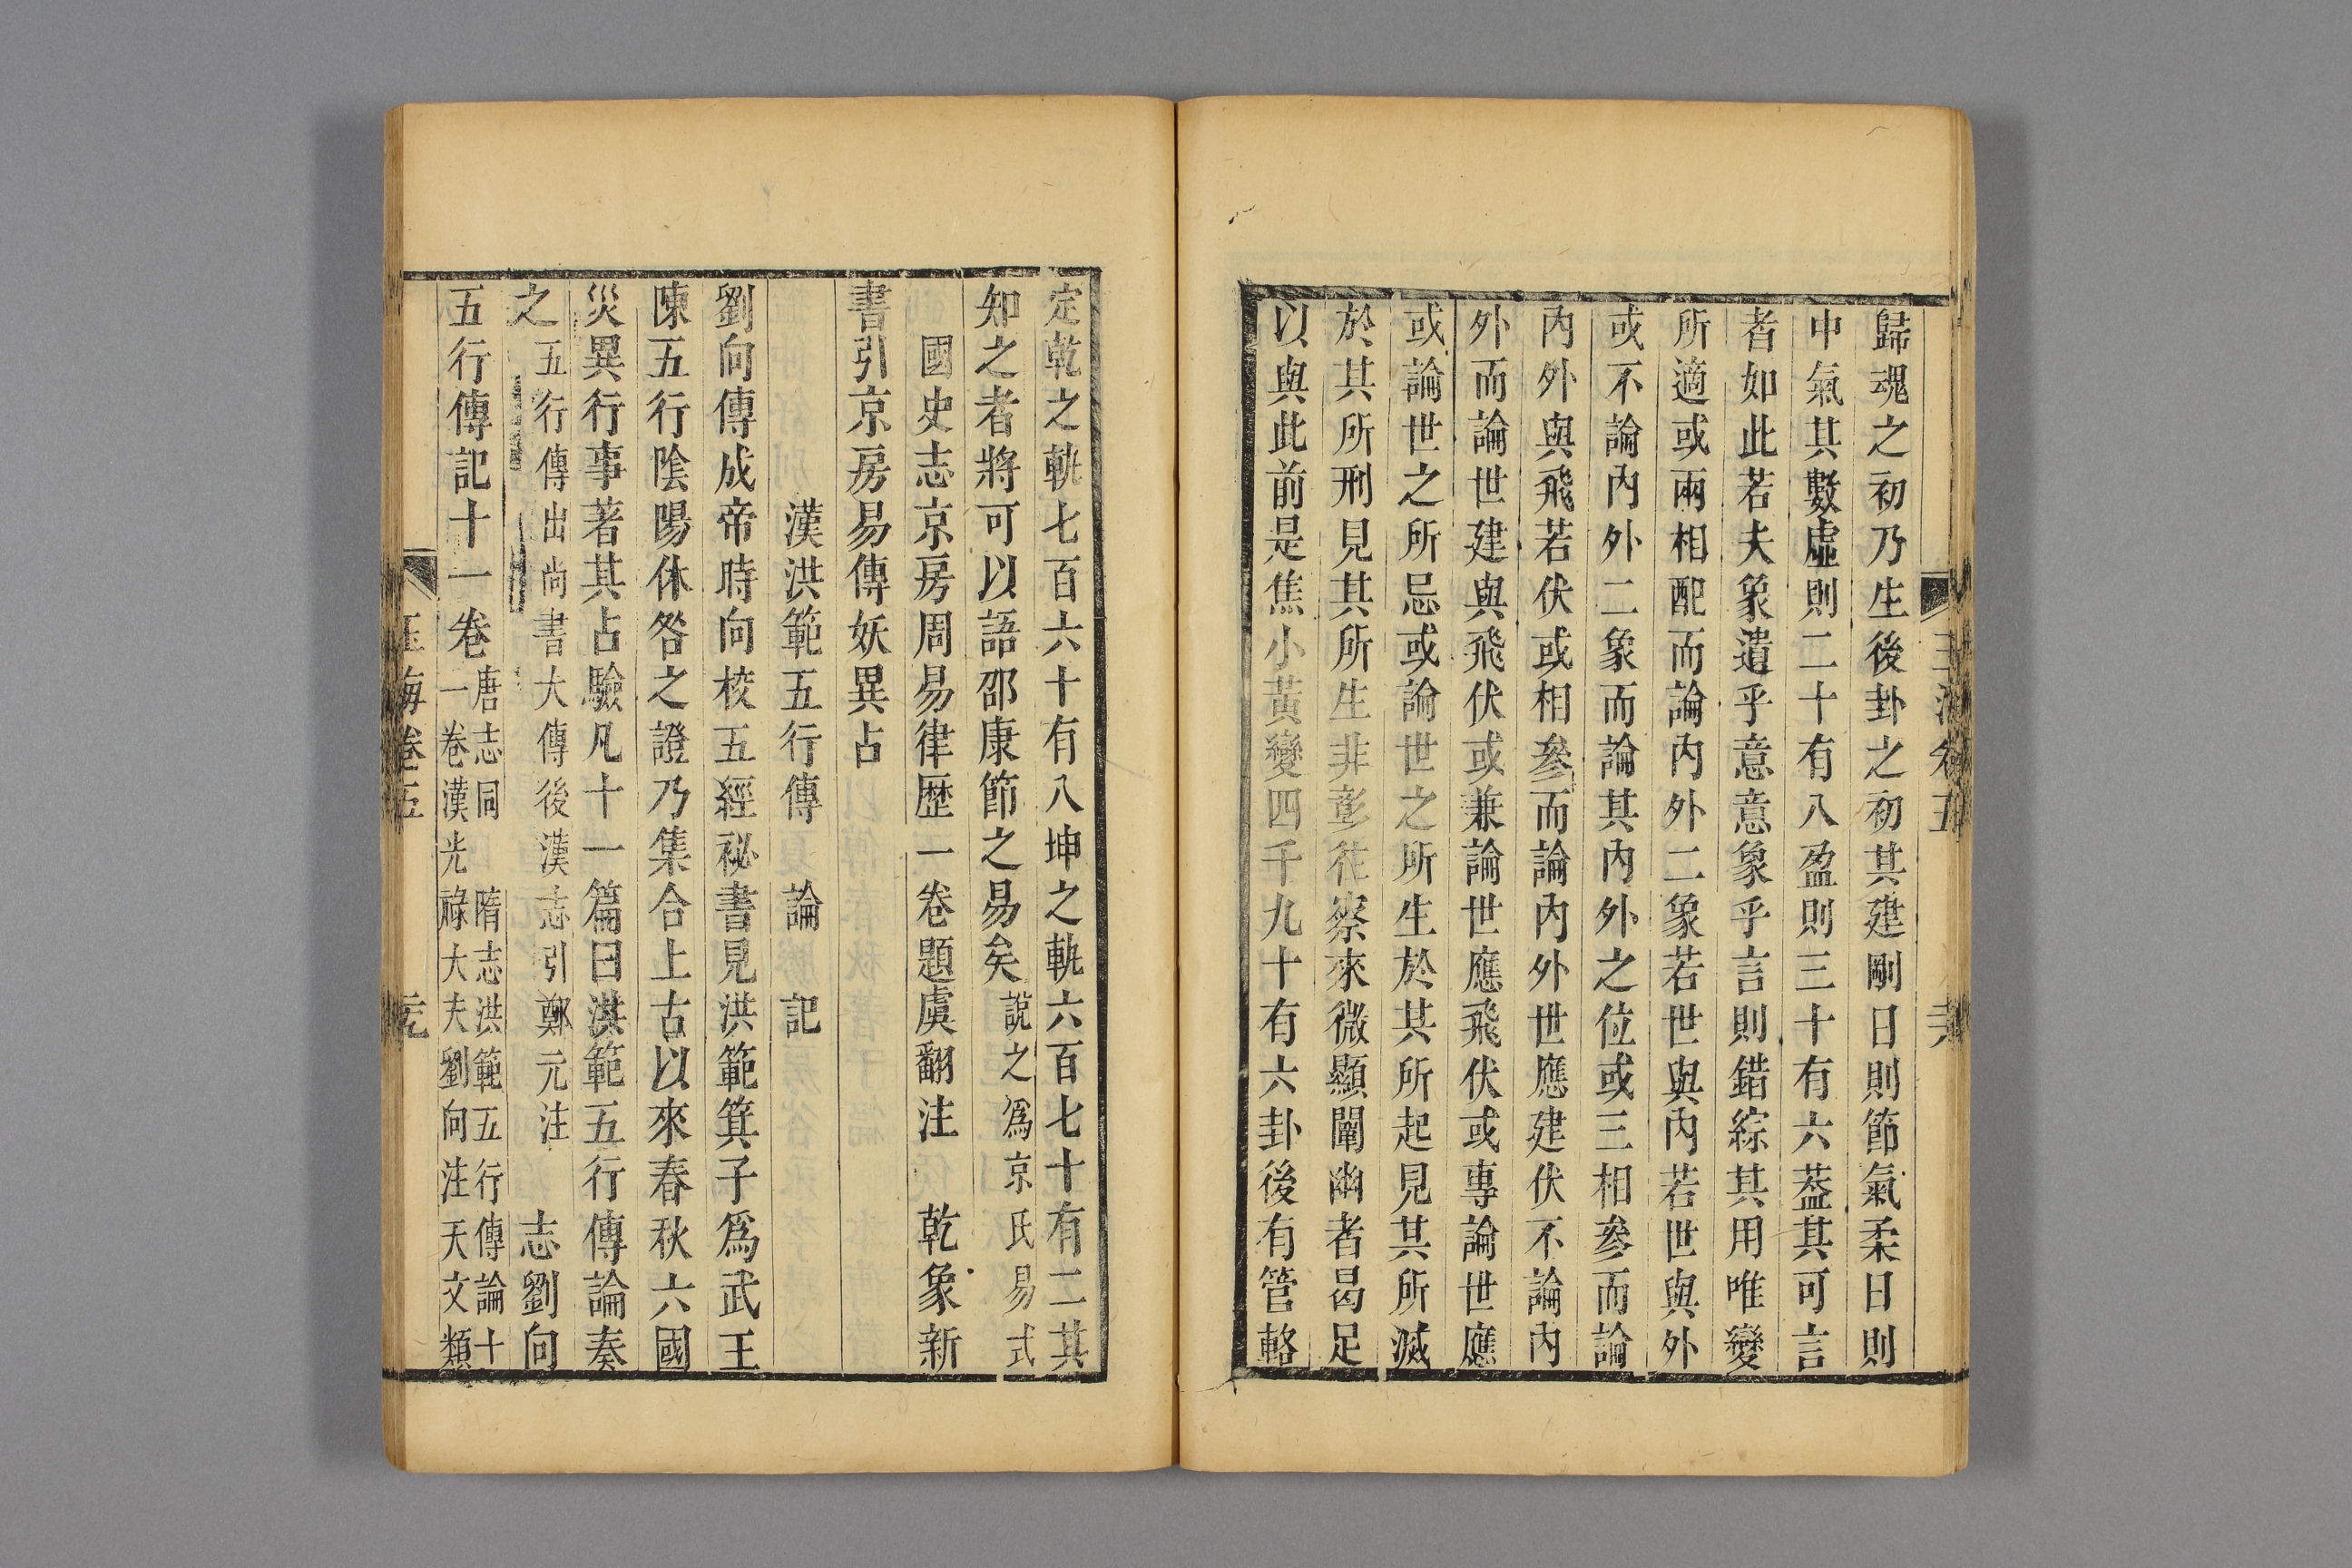 玉海卷五
歸魂之初乃生後卦之初其建剛日則節氣柔日則
中氣其數虛則二十有八盈則三十有六葢其可言
者如此若夫象遺乎意意象乎言則錯綜其用唯變
所適或兩相配而論內外二象若世與內若世與外
或不論內外二象而論其內外之位或三相參而論
內外與飛若伏或相參而論內外世應建伏不論內
外而論世建與飛伏或兼論世應飛伏或專論世應
或論世之所忌或論世之所生於其所起見其所滅
於其所刑見其所生非彰徃察來微顯闡幽者曷足
以與此前是焦小黃變四千九十有六卦後有管輅
定乾之軌七百六十有八坤之軌六百七十有二其
知之者將可以語邵康節之易矣說之爲京氏易式
國史志京房周易律歷一卷題虞翻注　乾象新
書引京房易傳妖異占
漢洪範五行傳　論　記
劉向傳成帝時向校五經祕書見洪範箕子爲武王
陳五行陰陽休咎之證乃集合上古以來春秋六國
災異行事著其占驗凡十一篇曰洪範五行傳論奏
之五行傳出尚書大傳後漢志引鄭元注　志劉向
五行傳記十一卷唐志同　隋志洪範五行傳論十
一卷漢光祿大夫劉向注天文類
玉海卷五　元